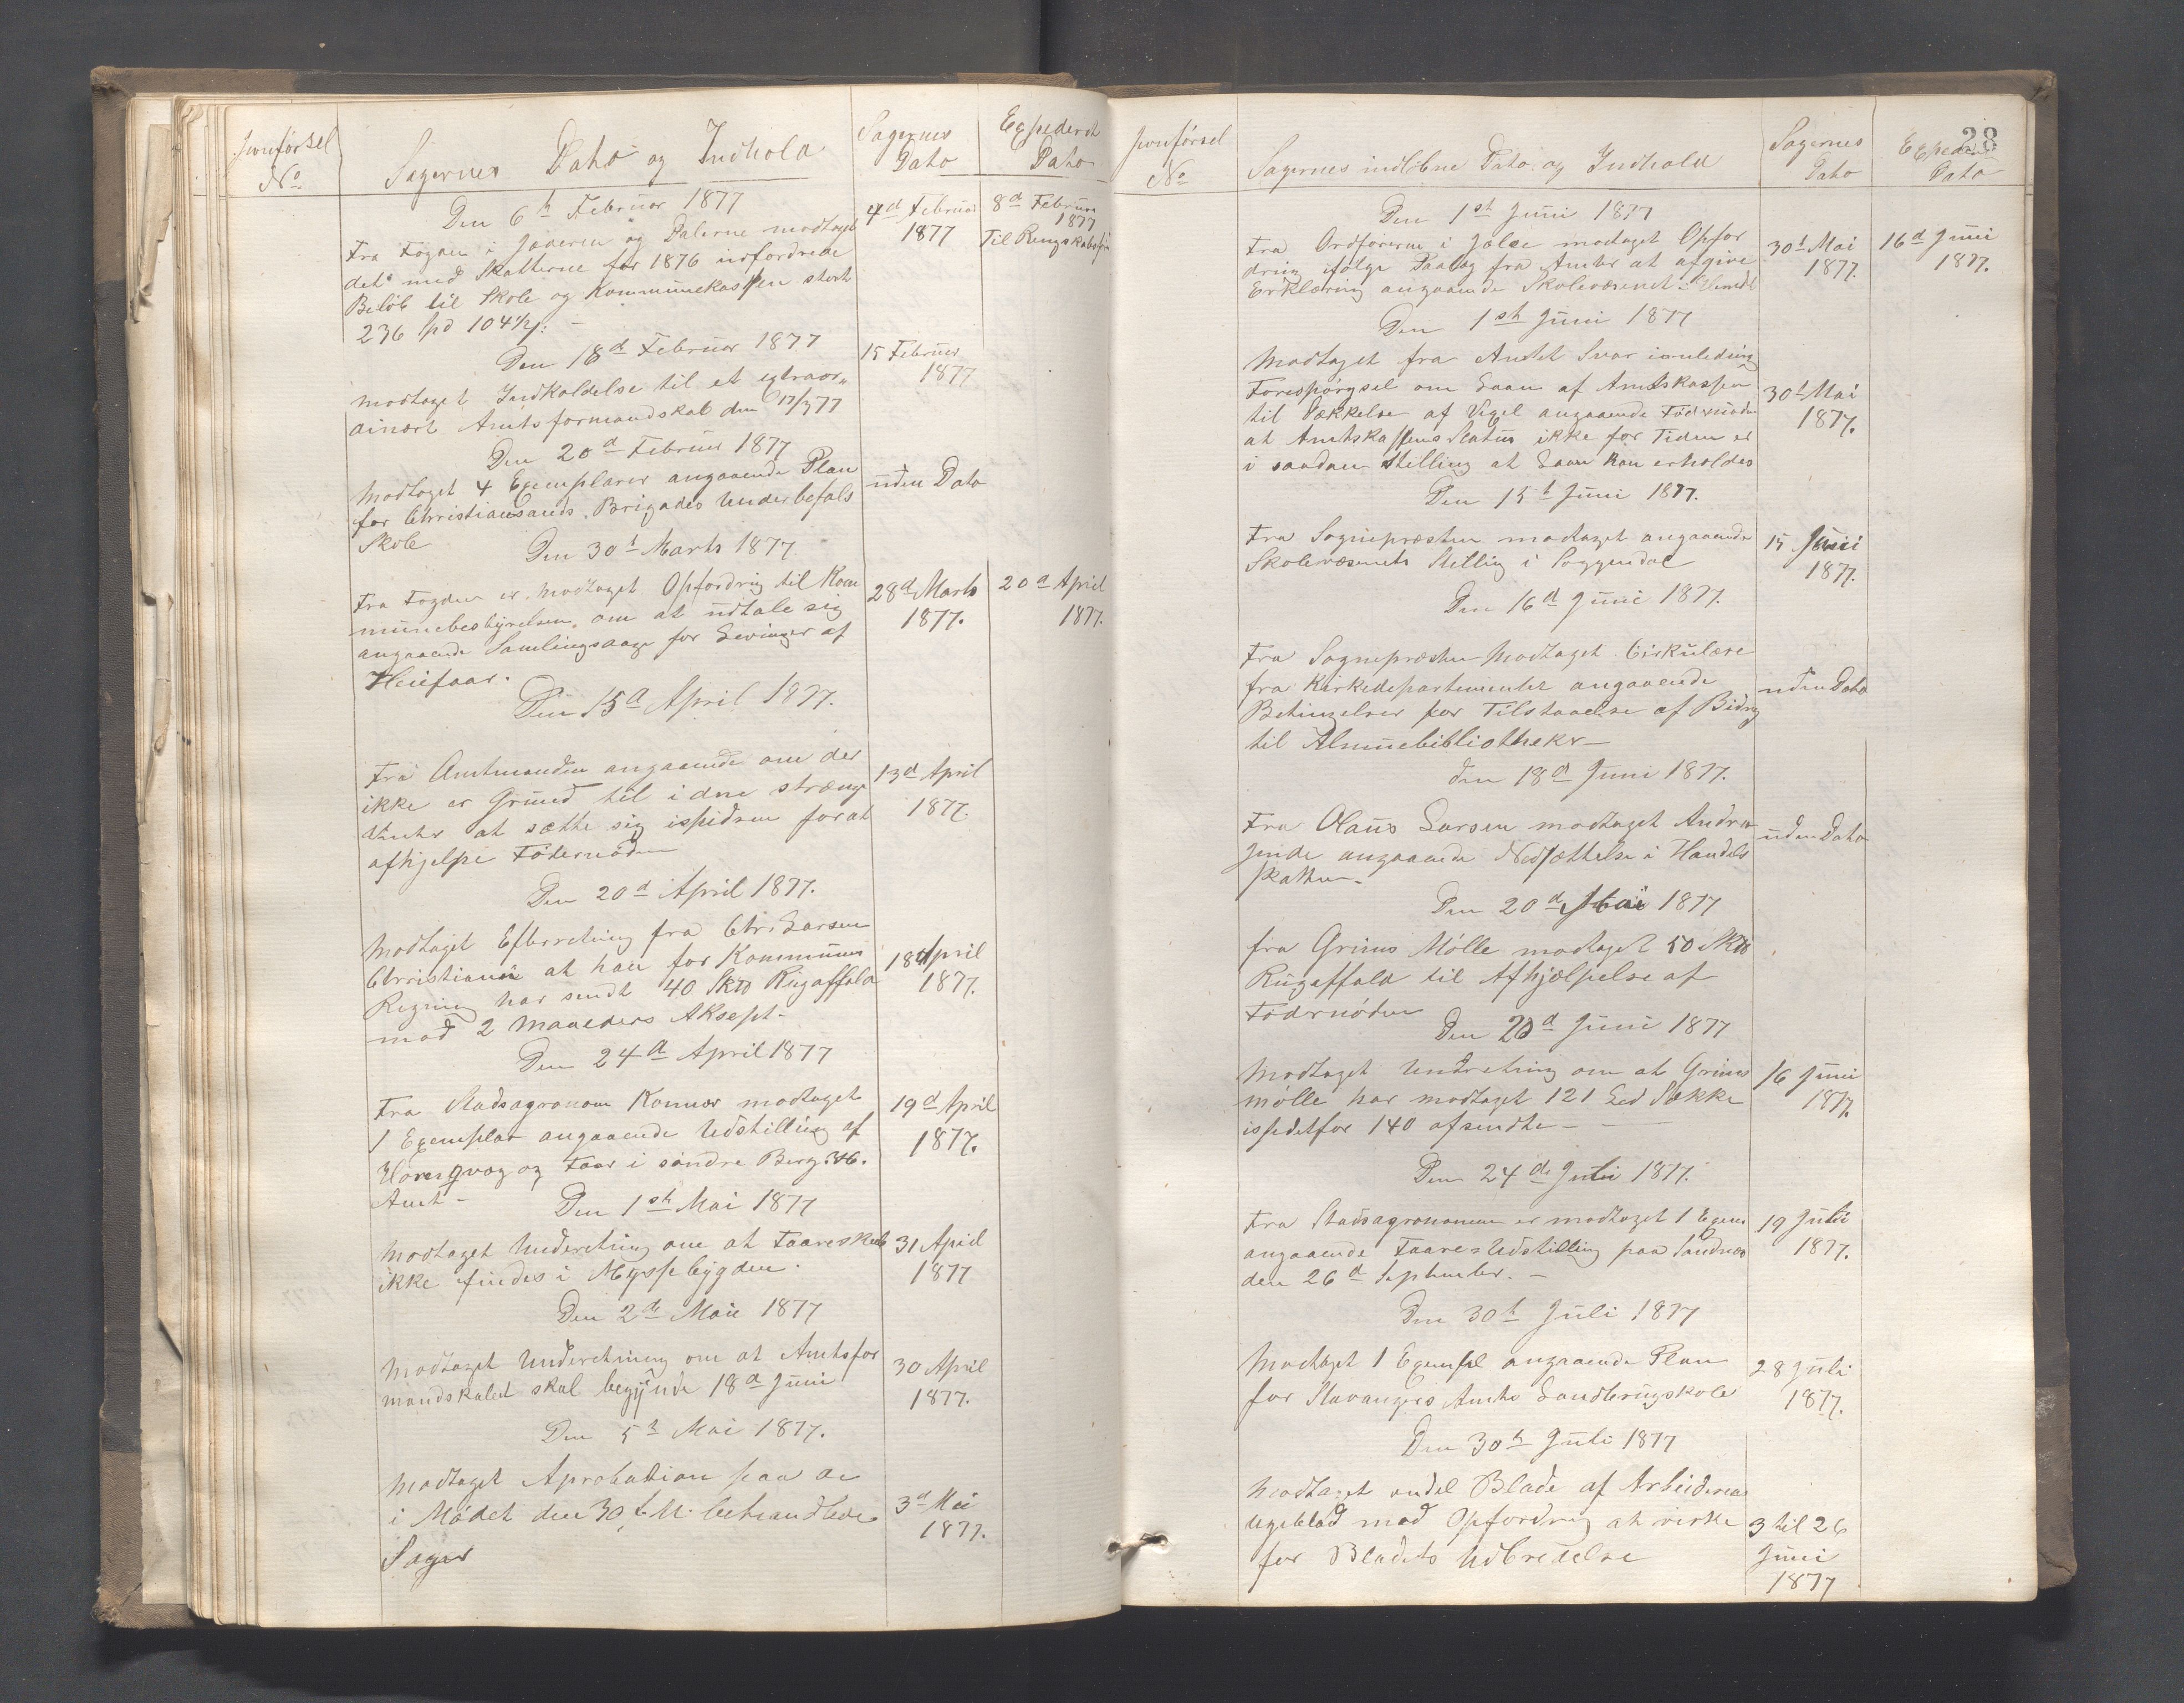 Jornførsel
No
Sagernes Dato og Indhold
Sagernes
Dato
Expederet
Dato
Den 6t Februar 1877
Fra Fogden i Jæderen og Dalerne modtaget
det med Skatterne for 1876 indfordrede
Beløb til Skole og Kommunekassen stort
236 spd 104 1/2 s: -
4d Februar
1877
8d Februar
1877
Til Rengskabsf
Den 18d Februar 1877
modtaget Indkaldelse til et extraor„
dinært Amtsformandskab den 17/3 77
15 Februar
1877
Den 20d Februar 1877
Modtaget 4 Exemplarer angaaende Plan
for Christiansands Brigades Underbefals
Skole
uden Dato
Den 30t Marts 1877
Fra Fogden er modtaget Opfordring til Kom
munebestyrelsen om at udtale sig
angaaende Samlingsaage for Levinger af
Heiefaar.
28d Marts
1877.
20d April
1877.
Den 15d April 1877.
Fra Amtmanden angaaende om der
ikke er Grund til i dne strænge
Vinter at sætte sig ispidsen forat
afhjelpe Fódernøden
13d April
1877.
Den 20d April 1877.
Modtaget Efterretning fra Chr. Larsen
Christiania at han for Kommunens
Regning har sendt 40 Sktd Rugaffald
mod 2 Maaeders Aksept -
18d April
1877.
Den 24d April 1877
Fra Stadsagronom modtaget
1 Exemplar angaaende Udstilling af
Hornqvæg og Faar i søndre Berg. H.
Amt -
19d April
1877.
Den 1st Mai 1877
Modtaget Underetning om at Faareskab
ikke findes i bygden.
31 April
1877
Den 2de Mai 1877
Modtaget Underetning om at Amtsfor
mandskabet skal begynde 18d Juni
30 April
1877.
Den 5t Mai 1877.
Modtaget Aprobation paa de
i Mødet den 30 f. M. behandlede
Sager
3d Mai
1877.
28
Jornførsel
No
Sagernes indløbne Dato og Indhold
Sagernes
Dato
Expedr
Dato
Den 1st Juni 1877
Fra Ordføreren i Jælse modtaget Opfor
dring ifølge Paalæg fra Amtet at afgive
Erklæring angaaende Skolevæsenet
30t Mai
1877.
16d Juni
1877.
Den 1st Juni 1877
Modtaget fra Amtet Svar ianledning
Forespørgsel om Laan af Amtskassen
til Dækkelse af Vexel angaaende Fódernøden
at Amtskassens Status ikke for Tiden er
i saadan Stilling at Laan kan erholdes
30t Mai
1877.
Den 15t Juni 1877.
Fra Sognepræsten modtaget angaaende
Skolevæsenets Stilling i Soggendal
15 Juni
1877.
Den 16d Juni 1877.
Fra Sognepræsten Modtaget Cirkulære
fra Kirkedepartementet angaaende
Betingelser for Tilstaaelse af Bidrag
til Almuebibliotheker -
uden Dato
den 18d Juni 1877.
Fra Olaus Larsen modtaget Andra
gende angaaende Nedsættelse i Handels
skatten -
uden Dato
Den 20d Mai 1877
fra Grims Mølle modtaget 50 Sktd
Rugaffald til Afhjælpelse af
Fódernøden
Den 20d Juni 1877
Modtaget Underetning om at Grims
mølle har modtaget 121 Led Sække
istedetfor 140 afsendte -
16 Juni
1877.
Den 24de Juli 1877.
Fra Stadsagronomen er modtaget 1 Exem
angaaende Faare=Udstilling paa Sandnæs
den 26d September. -
19 Juli
1877.
Den 30t Juli 1877
Modtaget 1 Exempl angaaende Plan
for Stavangers Amts Landbrugskole
28 Juli
1877.
Den 30t Juli 1877
Modtaget endel Blade af Arbeidernes
Ugeblad med Opfordring at virke
for Bladets Udbredelse
3 til 26
Juni
1877